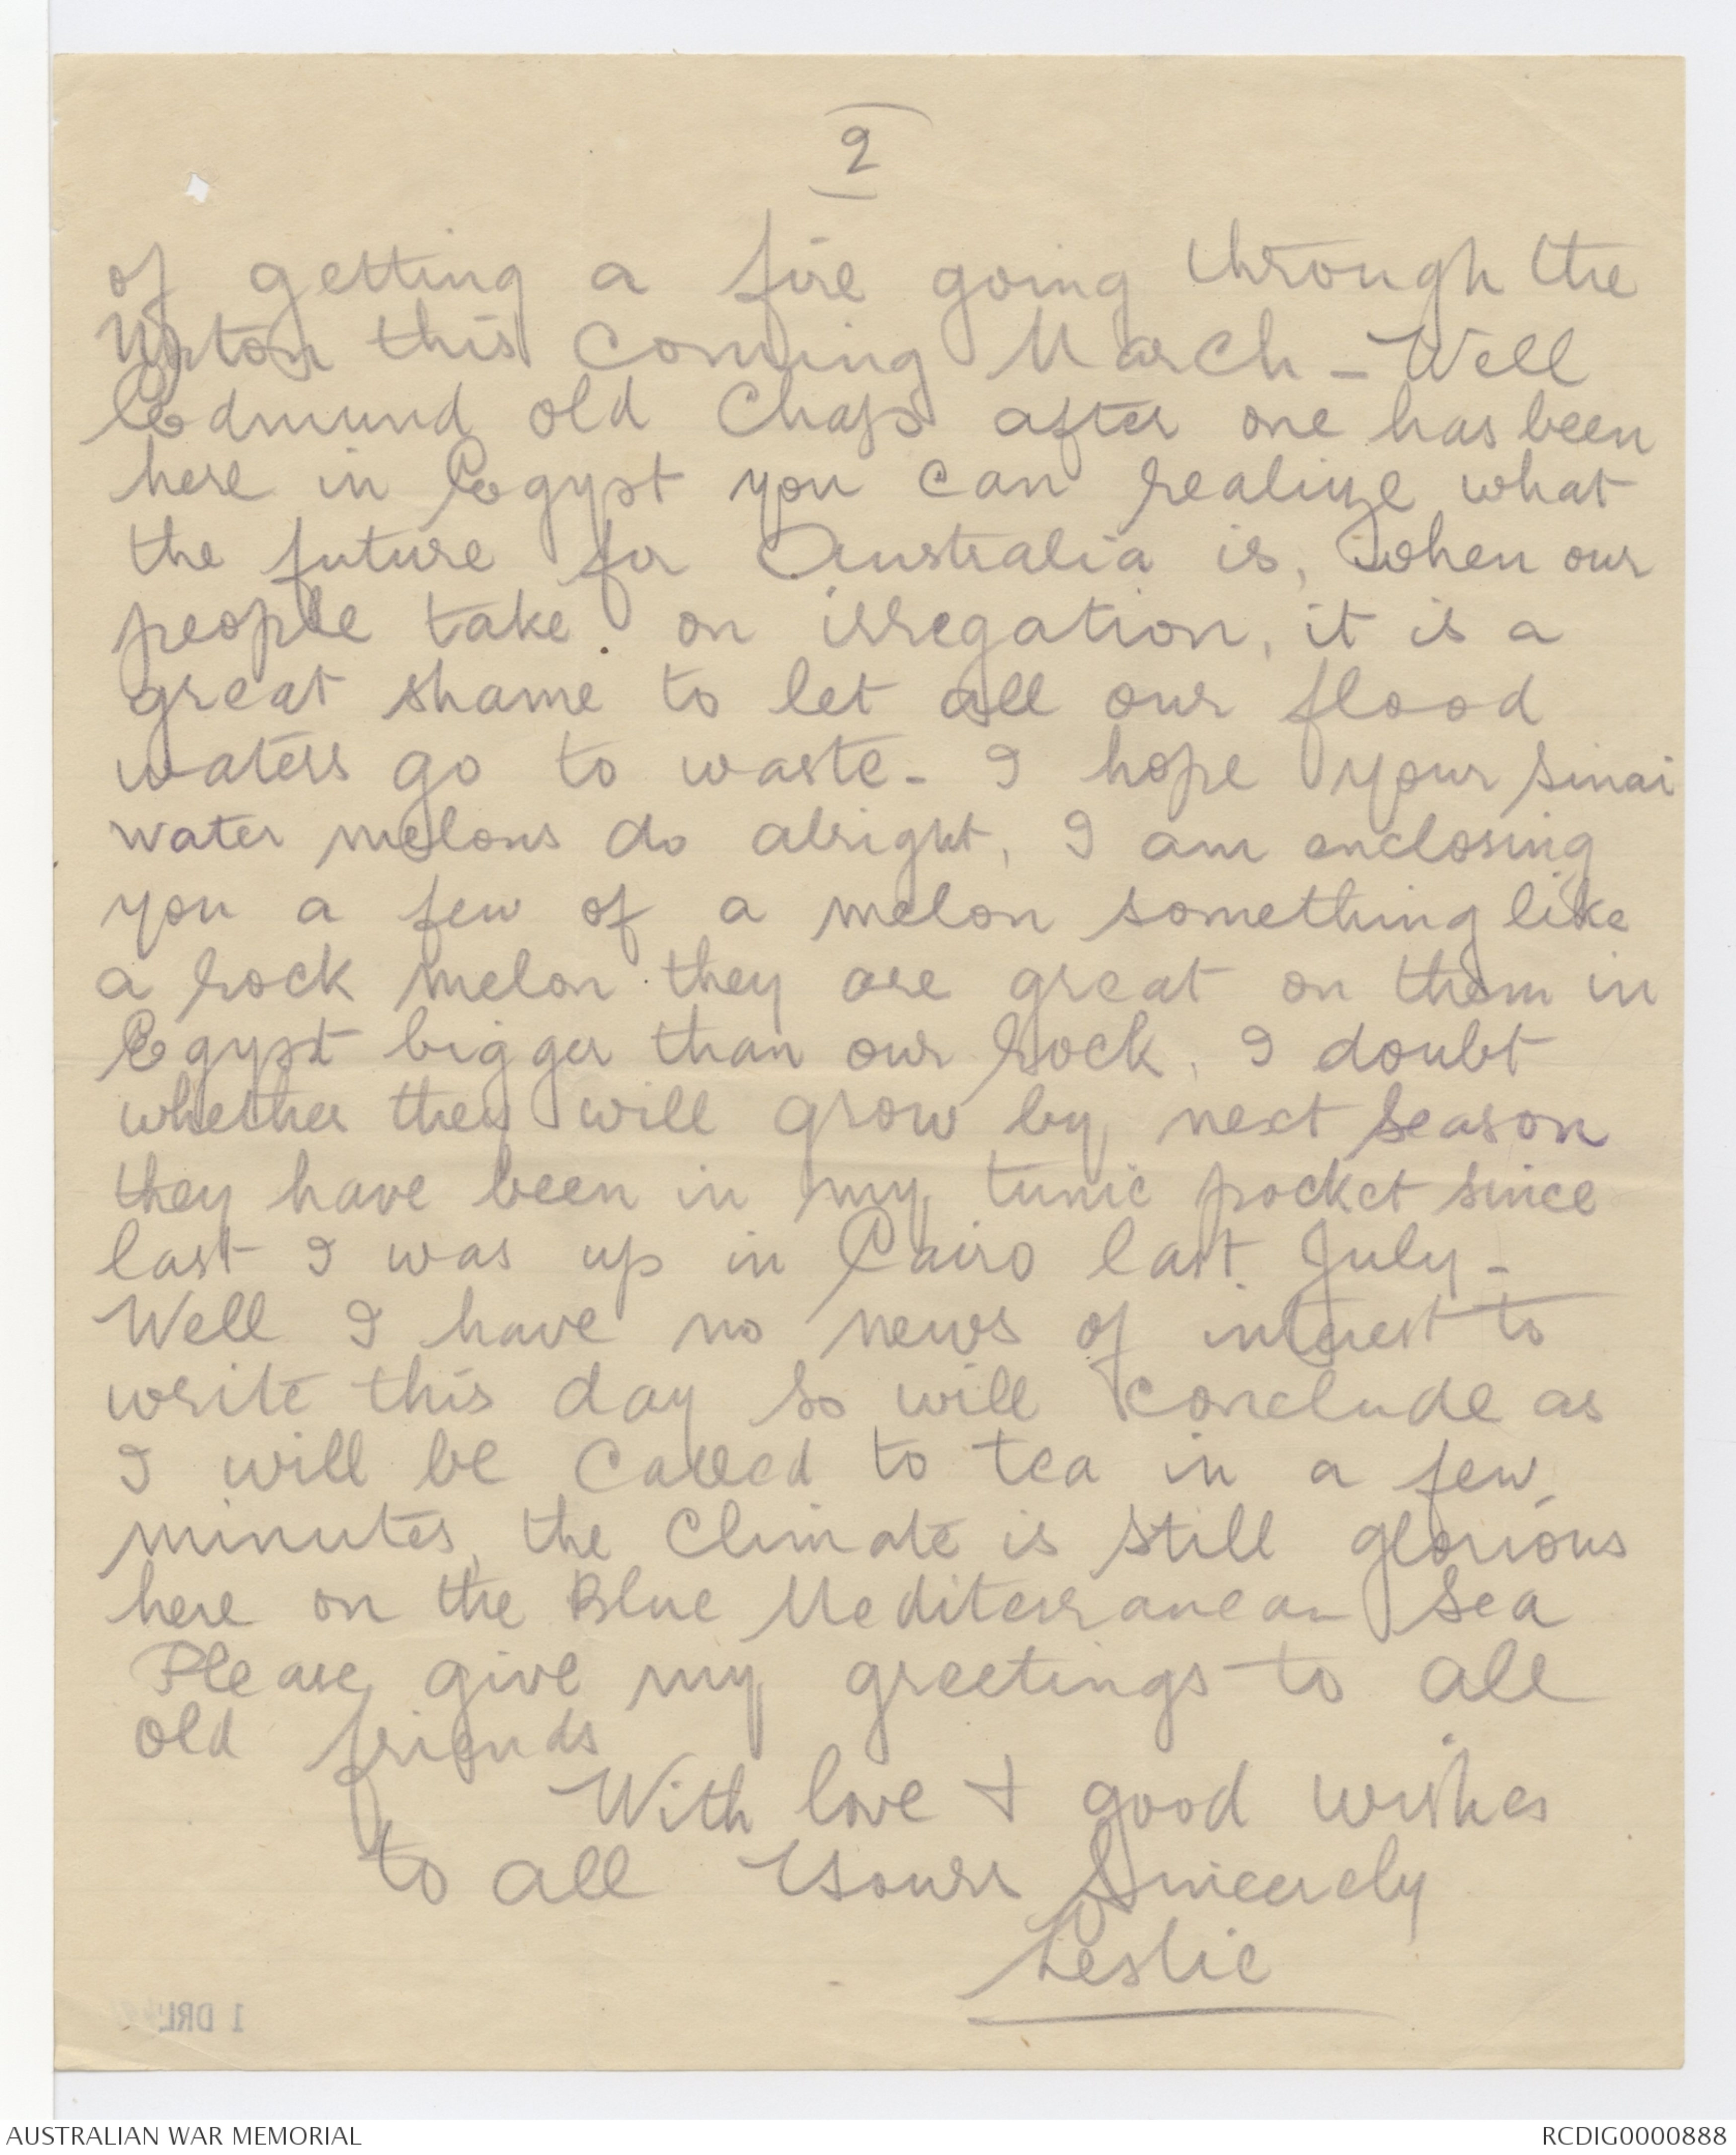 2
of getting a fire going through the
this coming March - Well
Edmund old Chap after one has been
here in Egypt you can realize what
the future for Australia is, when our
people take on irregation, it is a
great shame to let all our flood
waters go to waste - I hope your sinai
water melons do alright, I am enclosing
you a few of a melon something like
a rock melon they are great on them in
Egypt bigger than our rock, I doubt
whether they will grow by next season
they have been in my tunic pocket since
last I was up in Cairo last July -
Well I have no news of interest to
write this day so will conclude as
I will be called to tea in a few
minutes, the Climate is still glorious
here on the Blue Mediterranean Sea
Please give my greetings to all
old friends
With love + good wishes
to all Yours Sincerely
Leslie
1 DRL
AUSTRALIAN WAR MEMORIAL
RCDIG0000888